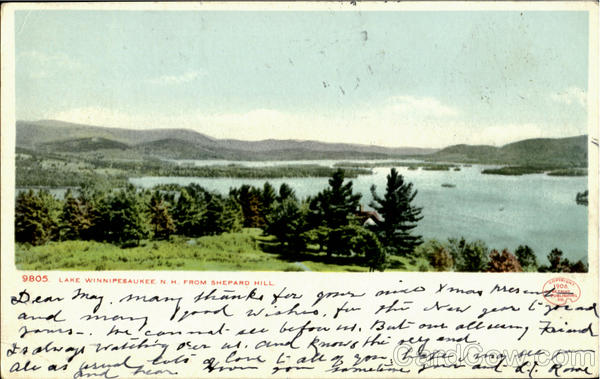 9805. LAKE WINNIPESAUKEE, N. H. FROM SHEPARD HILL.
1906
Dear May. many thanks for your nice Xmas Present
and many good wishes, for the New year to you and
yours. We can not see before us. But our all seeing Friend
Is always watching over us. and knows the way and
all as usual lots of love to all of you.
and hear from you sometime
CardCow.com